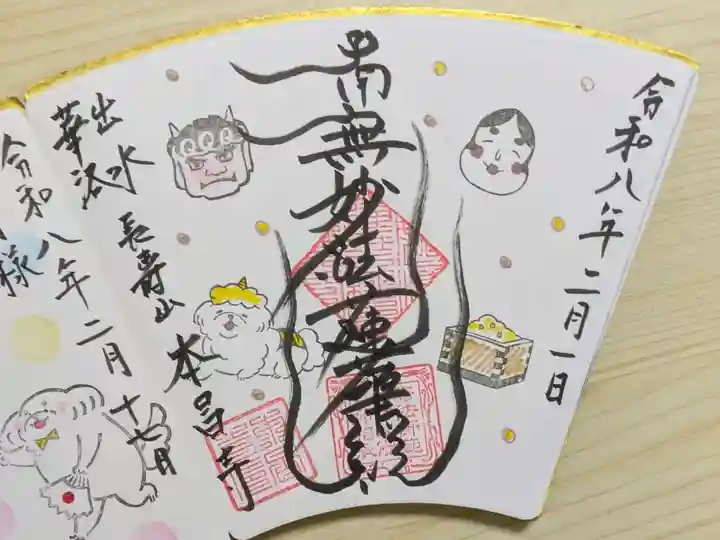 令和八年二月一日
南無妙法蓮華経
出水
長寿山
本昌寺
令和八年二月十七日